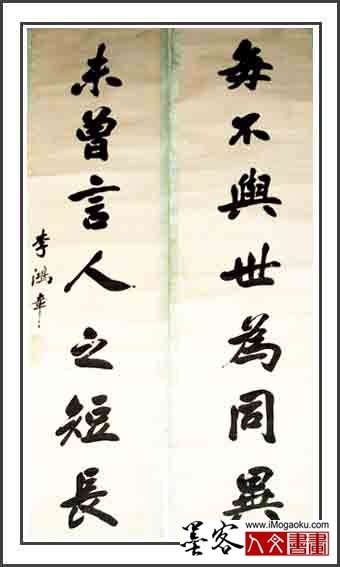 每不與世為同異
未曾言人之短長
李鴻章
墨客
www.iMogaoku.com
人文書畫